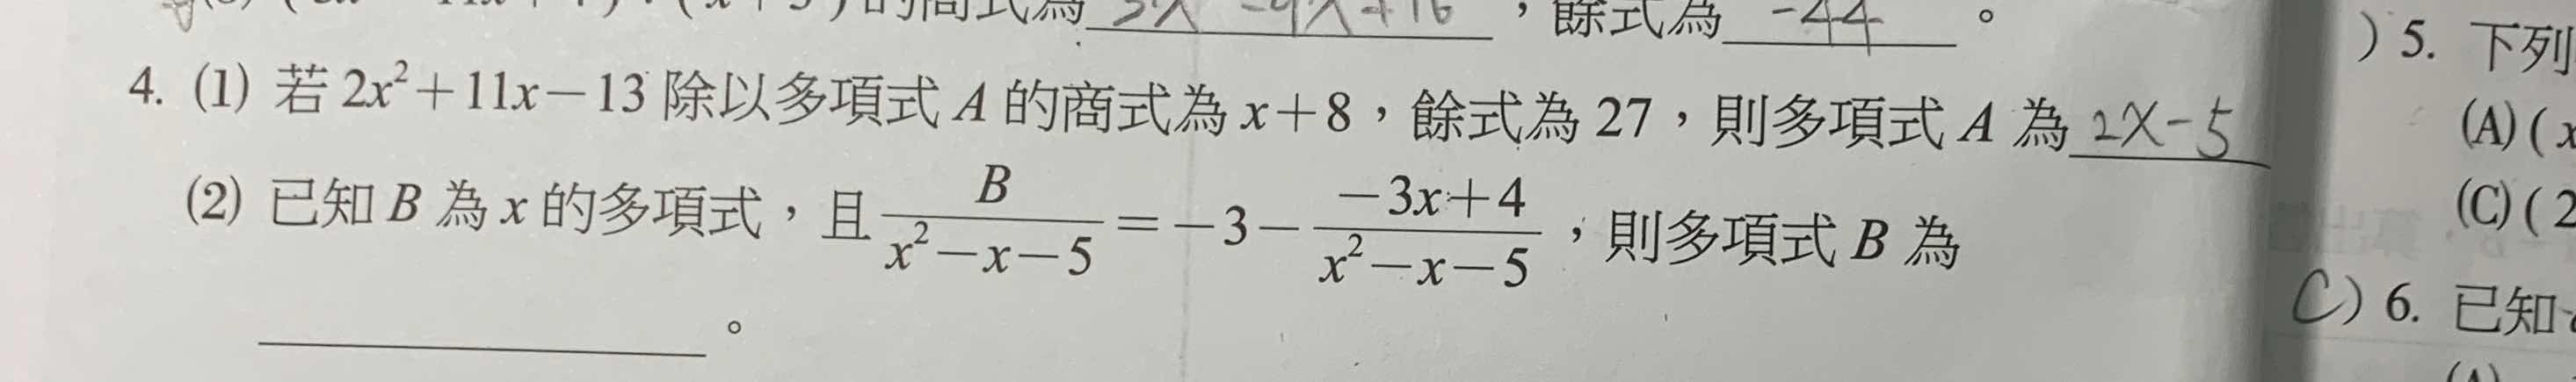 的商式為 3x -9x+16 ，餘式為 -44 。
4. (1) 若 2x²+11x－13 除以多項式 A 的商式為 x+8，餘式為 27，則多項式 A 為 2x-5
(2) 已知 B 為 x 的多項式，且 B/(x²－x－5)＝－3－(－3x+4)/(x²－x－5)，則多項式 B 為
。
) 5. 下列
(A) (
(C) ( 2
C) 6. 已知